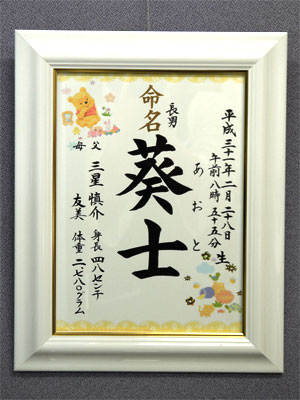 平成三十一年二月二十八日
午前八時五十五分
生
長男
あおと
命名
葵士
父 三星慎介
母 友美
身長四八センチ
体重二七八〇グラム